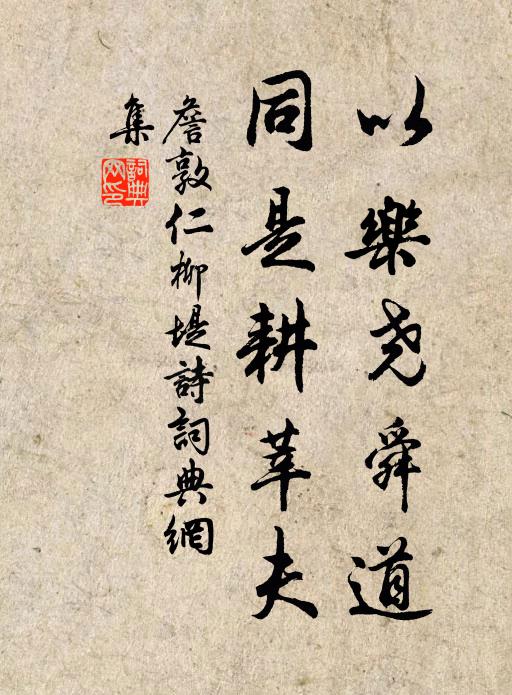 以樂尧舜道
同是耕莘夫
詹敦仁柳堤詩詞典網
集
詞典網印